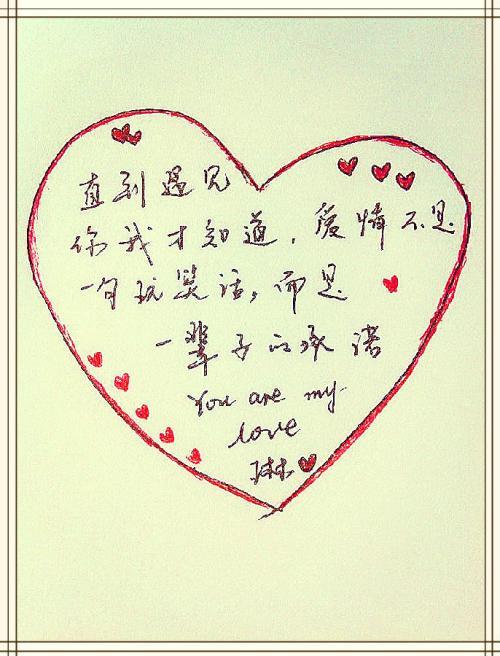 直到遇见
你我才知道，爱情不是
一句玩笑话，而是
一辈子的承诺
You are my
love
琳